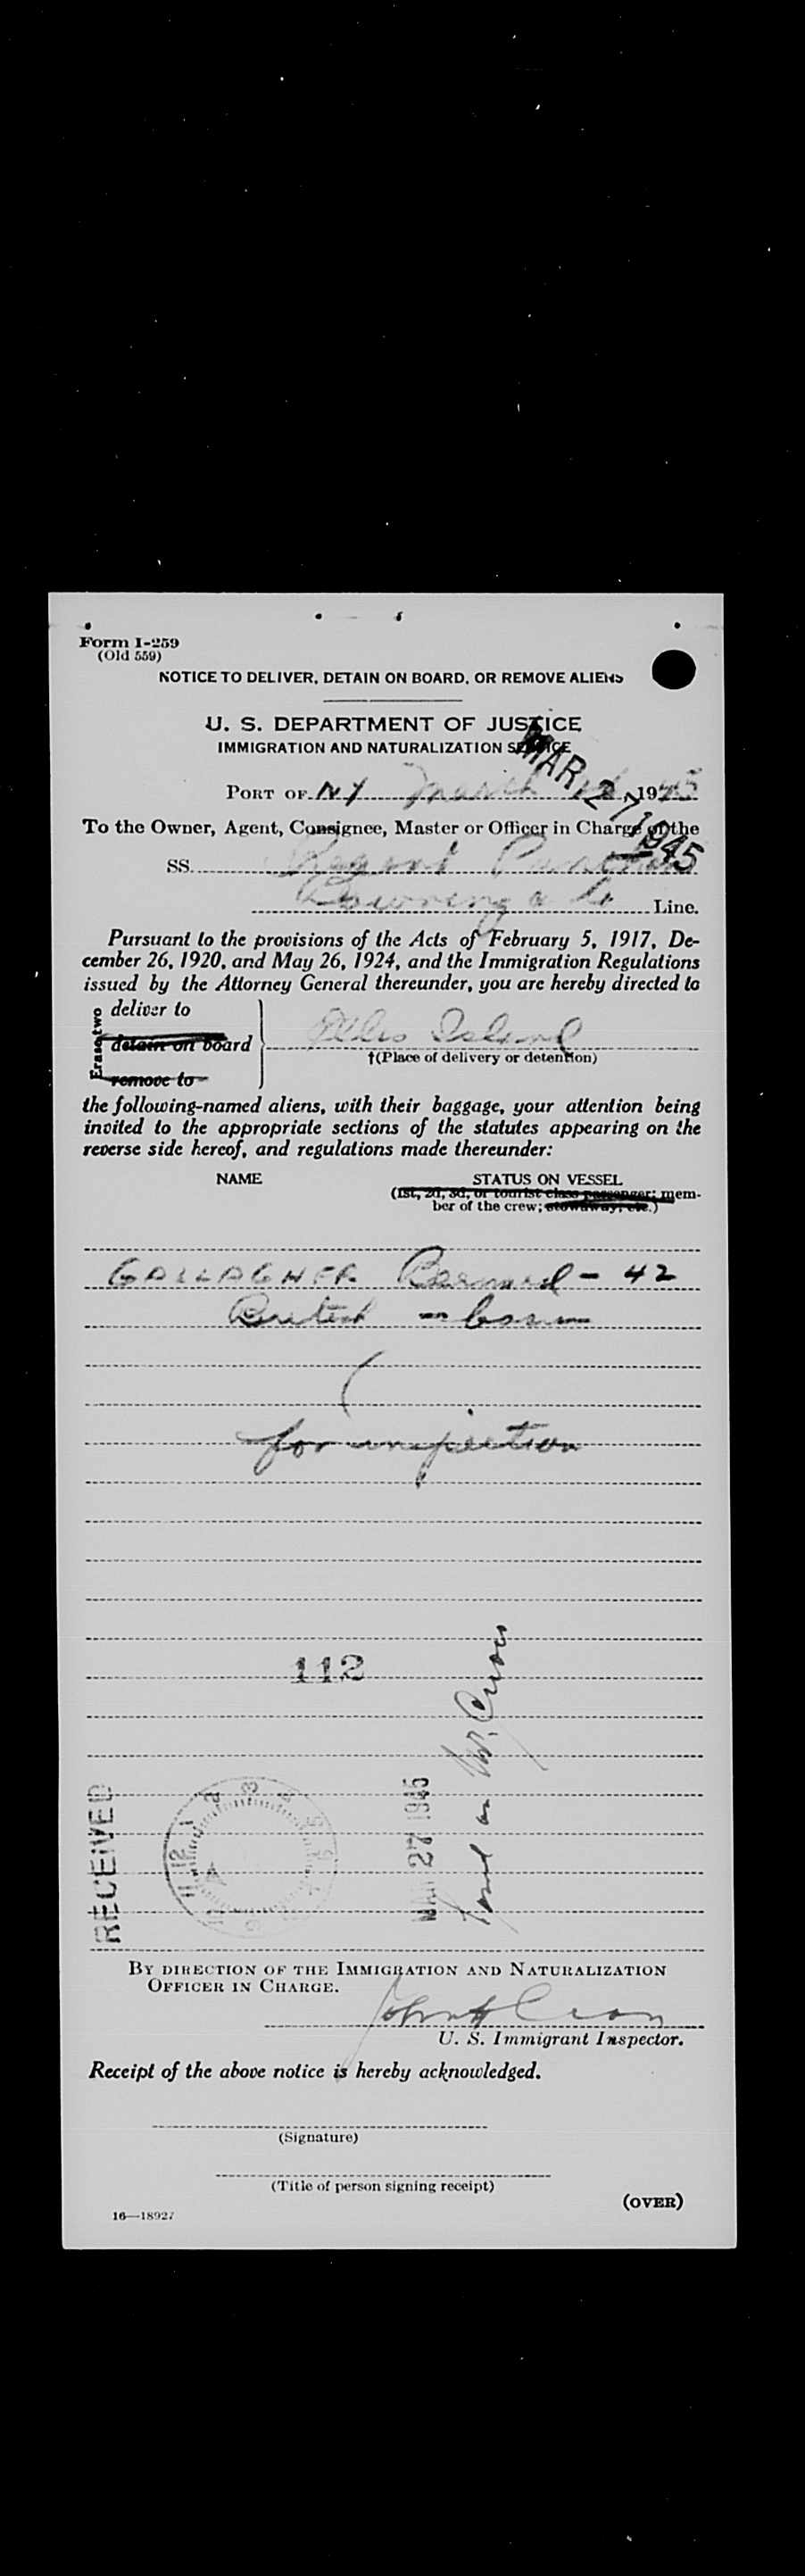 Form I-259
(Old 559)
NOTICE TO DELIVER, DETAIN ON BOARD, OR REMOVE ALIENS
U. S. DEPARTMENT OF JUSTICE
IMMIGRATION AND NATURALIZATION SERVICE
MAR 27 1945
PORT OF NY March 1945
To the Owner, Agent, Consignee, Master or Officer in Charge of the
SS. Regent
Line.
Pursuant to the provisions of the Acts of February 5, 1917, De-
cember 26, 1920, and May 26, 1924, and the Immigration Regulations
issued by the Attorney General thereunder, you are hereby directed to
Erase two
deliver to
detain on board
remove to
Ellis Island
†(Place of delivery or detention)
the following-named aliens, with their baggage, your attention being
invited to the appropriate sections of the statutes appearing on the
reverse side hereof, and regulations made thereunder:
NAME STATUS ON VESSEL
(1st, 2d, 3d, or tourist class passenger; mem-
ber of the crew; stowaway; etc.)
GALLAGHER Bernard - 42
British -
for inspection
112
RECEIVED
12 1 2 3
MAR 27 1945
BY DIRECTION OF THE IMMIGRATION AND NATURALIZATION
OFFICER IN CHARGE.
John
U. S. Immigrant Inspector.
Receipt of the above notice is hereby acknowledged.
(Signature)
(Title of person signing receipt)
(OVER)
16—18927